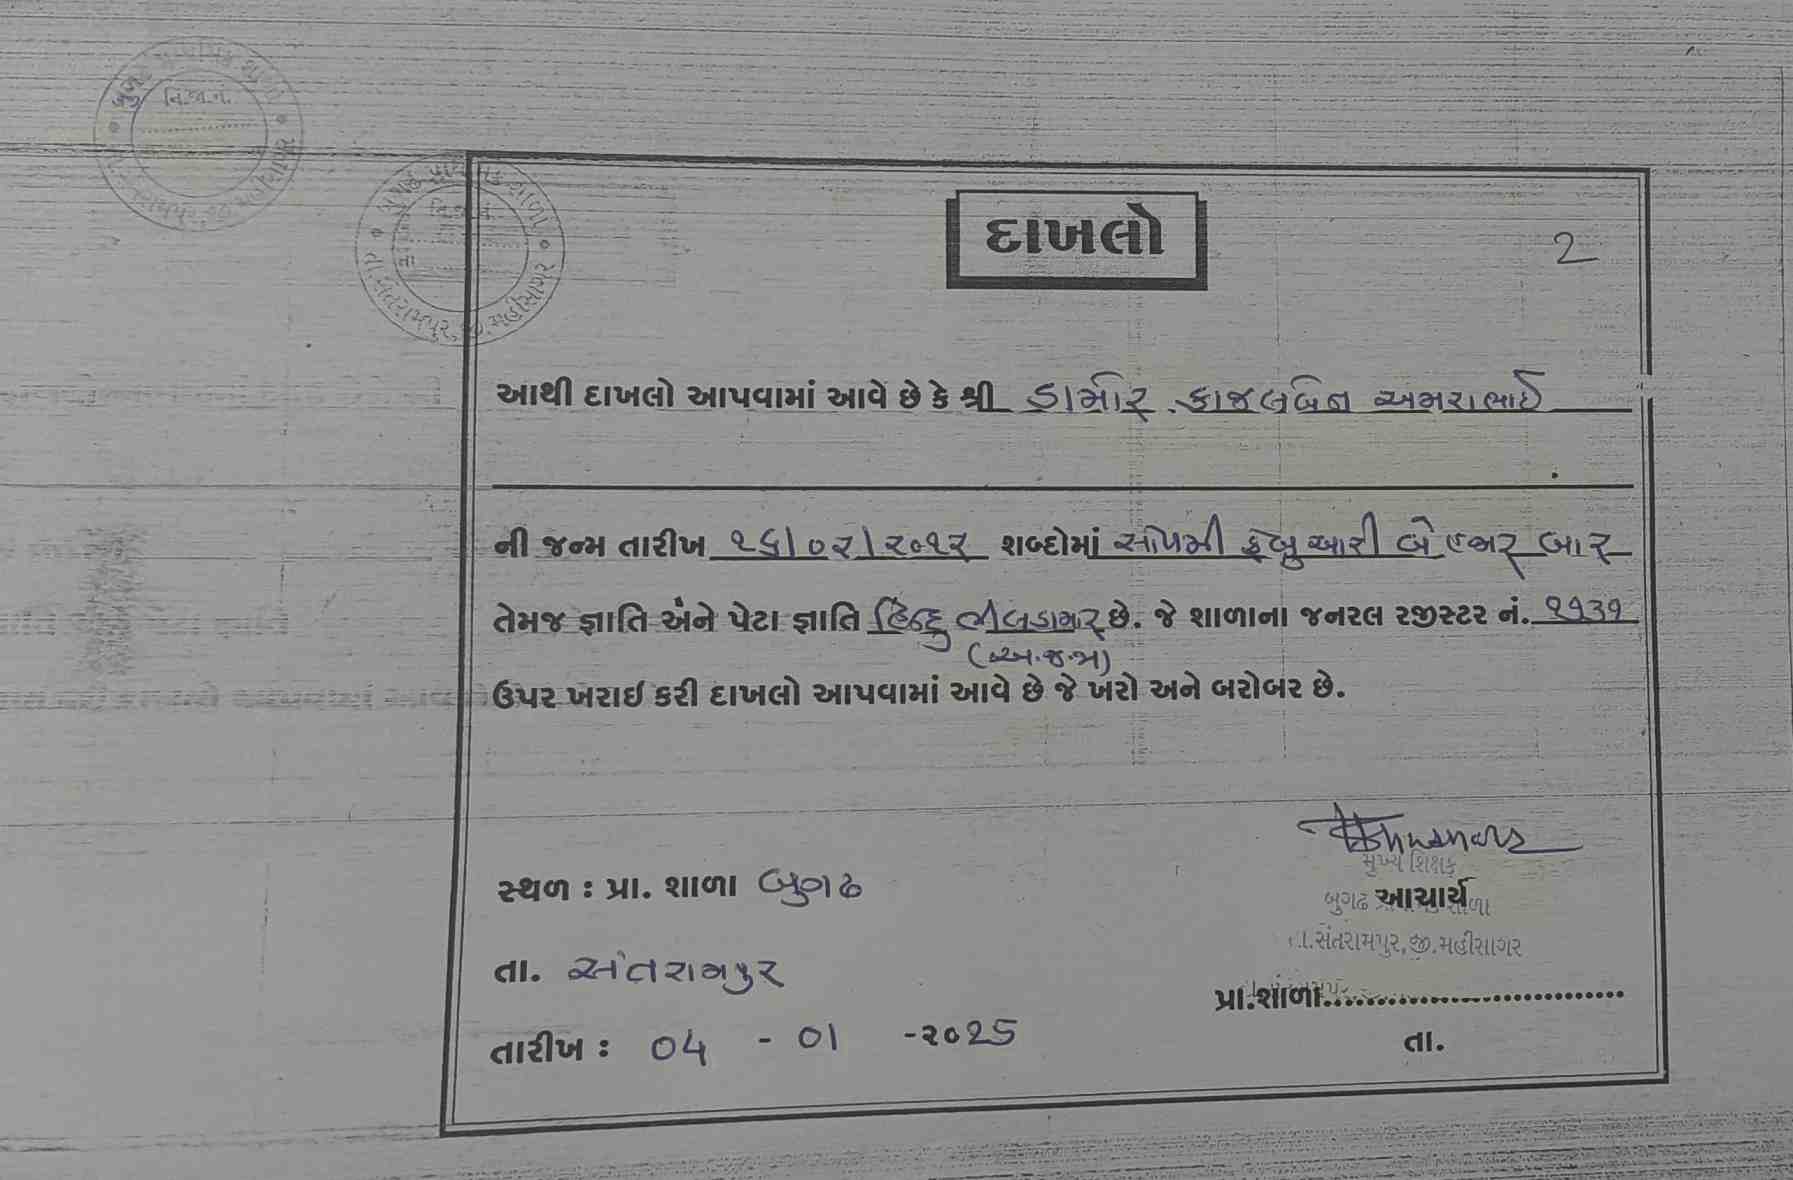 દાખલો
2
આથી દાખલો આપવામાં આવે છે કે શ્રી ડામોર કાજલબેન અમરાભાઈ
ની જન્મ તારીખ ૨૬/૦૨/૨૦૧૨ શબ્દોમાં ફેબ્રુઆરી બે હજાર બાર
તેમજ જ્ઞાતિ અને પેટા જ્ઞાતિ હિન્દુ ભીલડામર છે. જે શાળાના જનરલ રજીસ્ટર નં. ૧૧૩૧
(અ.જ.જા)
ઉપર ખરાઈ કરી દાખલો આપવામાં આવે છે જે ખરો અને બરોબર છે.
સ્થળ : પ્રા. શાળા બુગઢ
તા. સંતરામપુર
તારીખ : 04 - 01 -૨૦૨5
મુખ્ય શિક્ષક
આચાર્ય
બુગઢ શાળા
તા.સંતરામપુર,જી.મહીસાગર
પ્રા.શાળા..............................
તા.
બુગઢ પ્રાથમિક શાળા
નિ.જા.નં.
તા.સંતરામપુર,જી.મહીસાગર